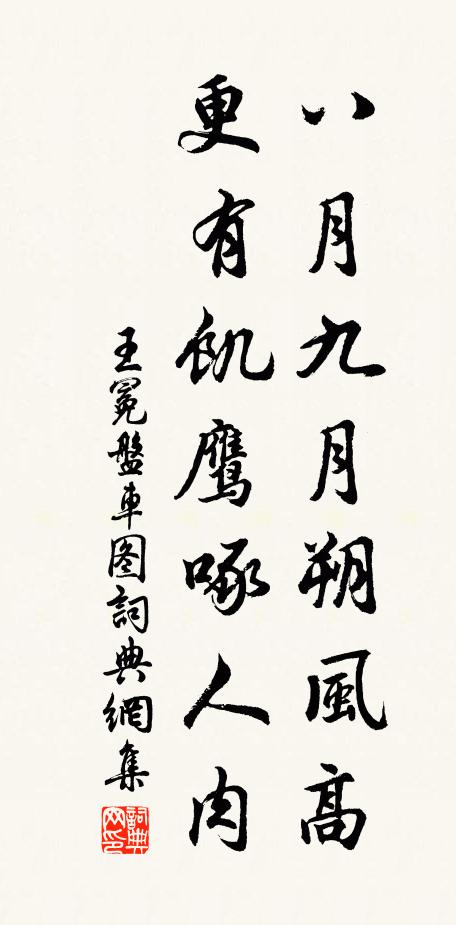 八月九月朔風高
更有飢鷹啄人肉
王冕盤車图詞典網集
詞典网印